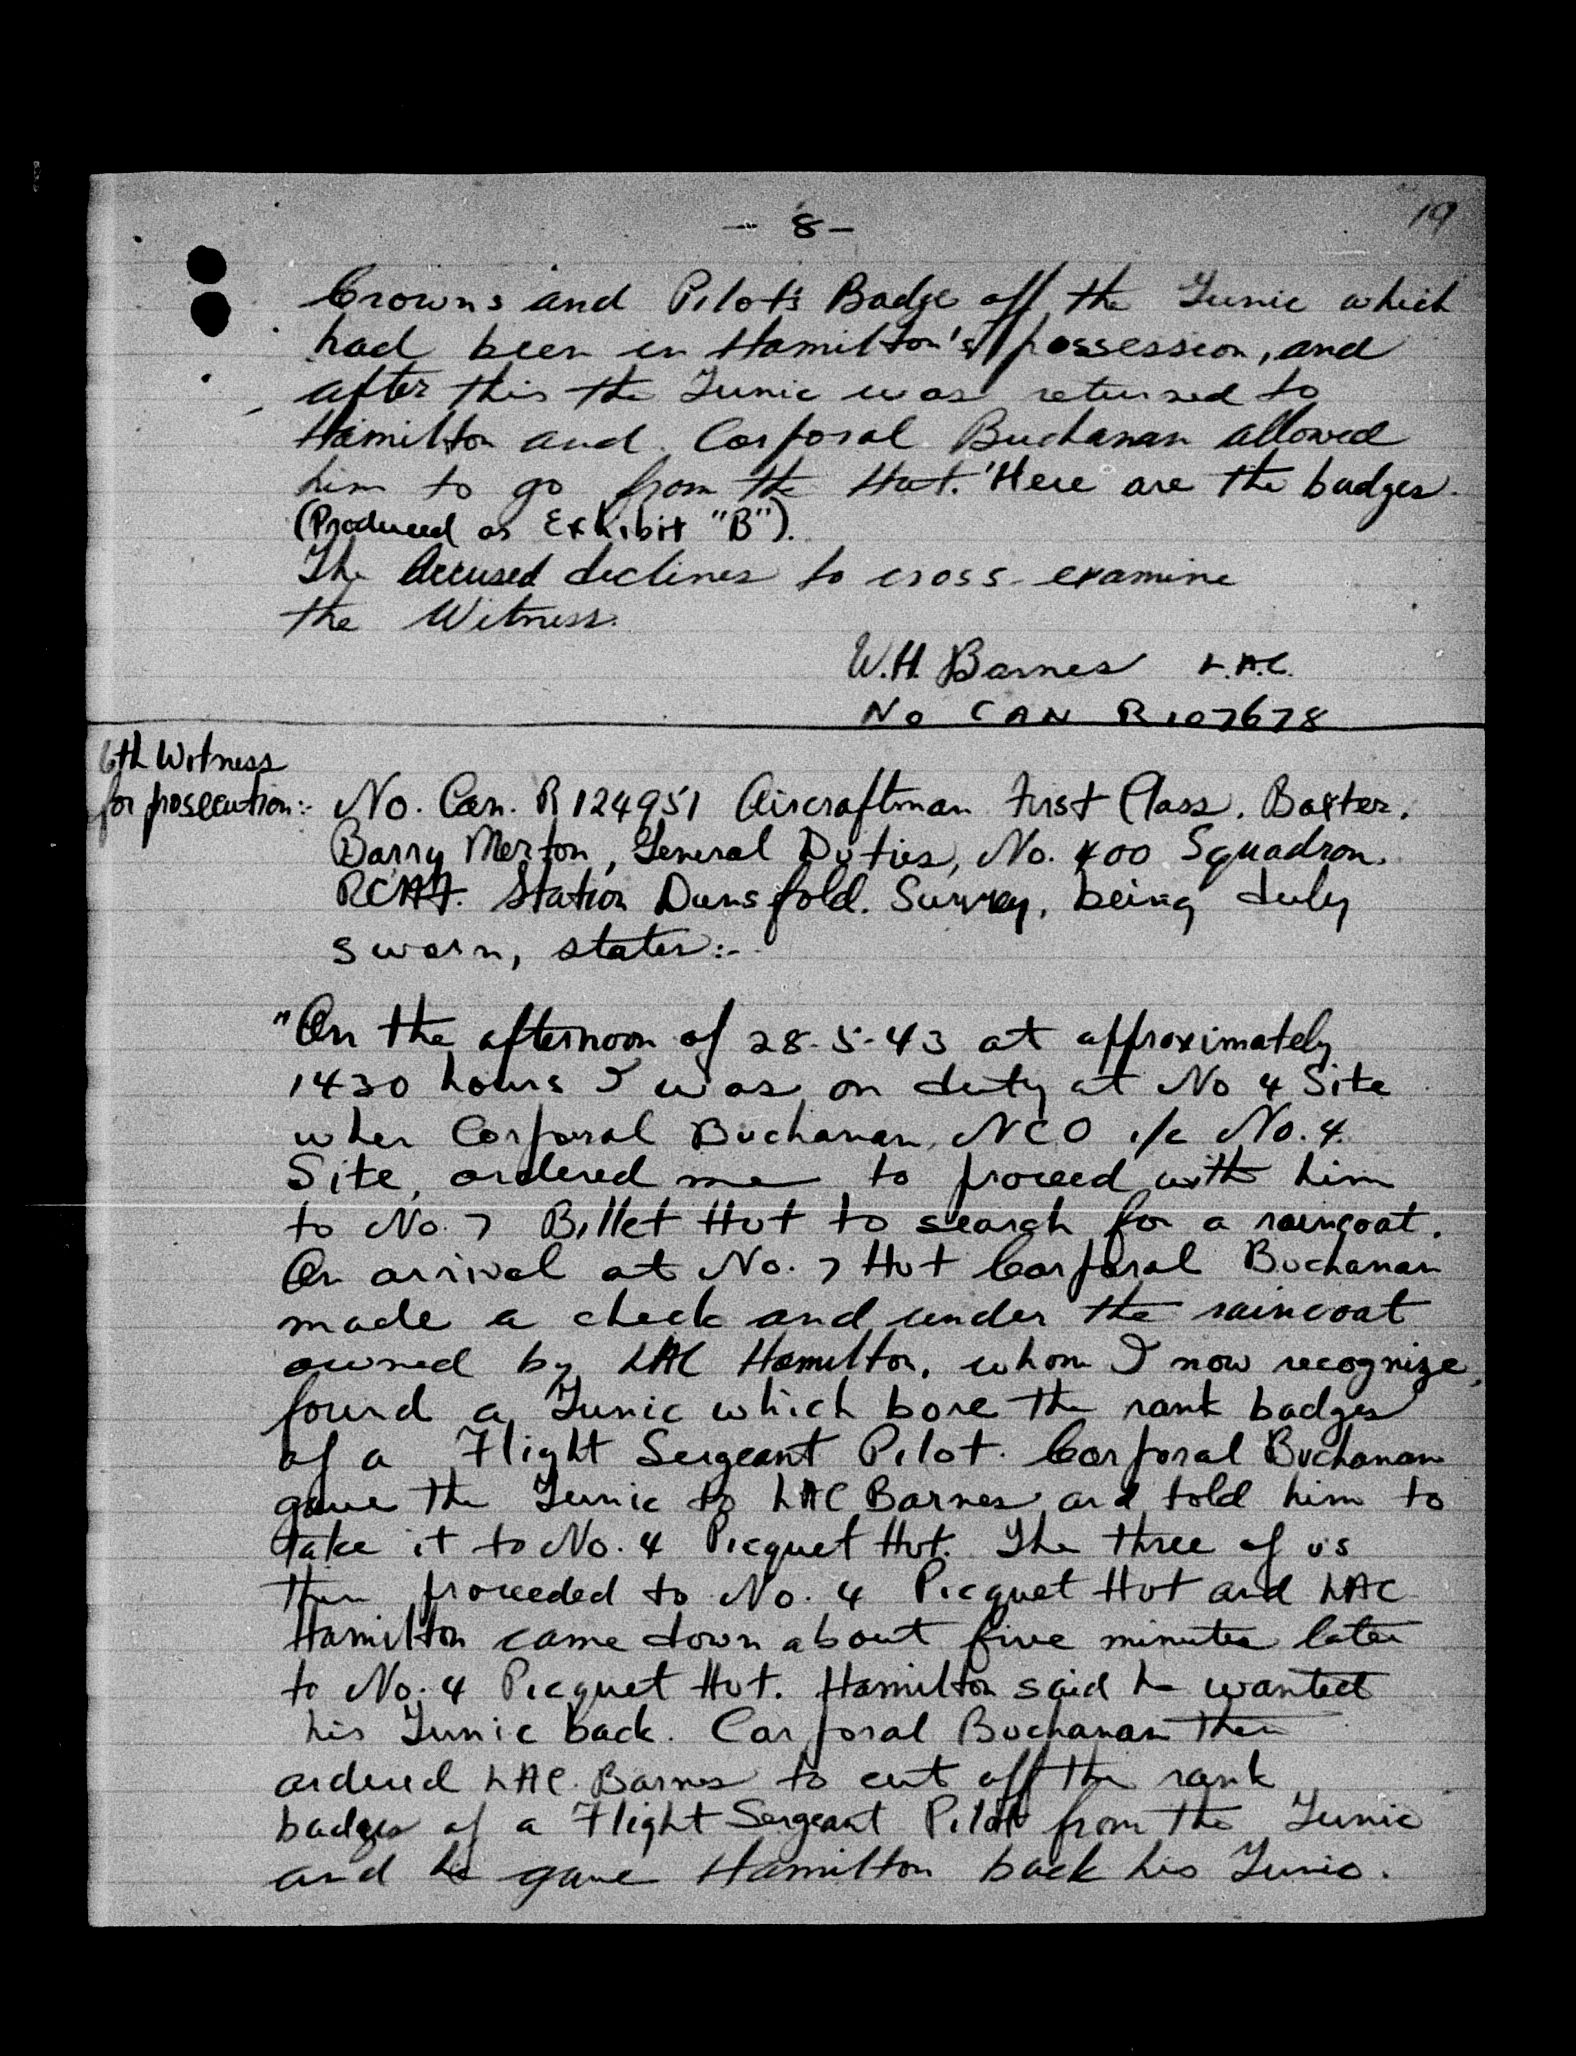 - 8 -
19
Crowns and Pilot's Badge off the Tunic which
had been in Hamilton's possession, and
after this the Tunic was returned to
Hamilton and Corporal Buchanan allowed
him to go from the Hut. Here are the badges.
(Produced as Exhibit "B").
The Accused declines to cross-examine
the Witness.
W.H. Barnes L.A.C.
No CAN R107678
6th Witness
for prosecution:- No. Can. R124951 Aircraftman First Class. Baxter.
Barry Merton, General Duties, No. 400 Squadron.
RCAF. Station Dunsfold. Surrey, being duly
sworn, states:-
"On the afternoon of 28-5-43 at approximately
1430 hours I was on duty at No 4 Site
when Corporal Buchanan, NCO i/c No. 4
Site, ordered me to proceed with him
to No. 7 Billet Hut to search for a raincoat.
On arrival at No. 7 Hut Corporal Buchanan
made a check and under the raincoat
owned by LAC Hamilton, whom I now recognize,
found a Tunic which bore the rank badges
of a Flight Sergeant Pilot. Corporal Buchanan
gave the Tunic to LAC Barnes and told him to
take it to No. 4 Picquet Hut. The three of us
then proceeded to No. 4 Picquet Hut and LAC
Hamilton came down about five minutes later
to No. 4 Picquet Hut. Hamilton said he wanted
his Tunic back. Corporal Buchanan then
ordered LAC. Barnes to cut off the rank
badges of a Flight Sergeant Pilot from the Tunic
and he gave Hamilton back his Tunic.